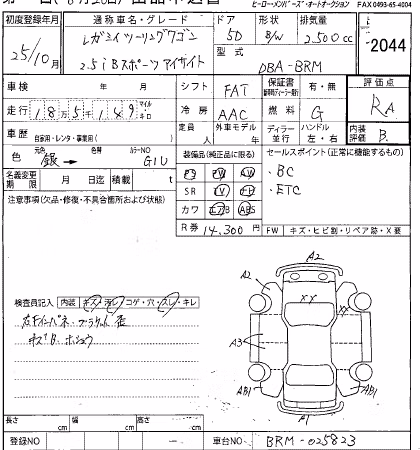 ヒーロー・メンバーズ・オートオークション FAX 0493-65-4004
初度登録年月 通称車名・グレード ドア 形状 排気量
25/10月 レガシィツーリングワゴン 5D B/W 2.500cc
2.5i Bスポーツ アイサイト
型式 DBA-BRM
2044
車検 年 月 シフト FAT 保証書 有・無 評価点
走行 18万5千149 マイル キロ 冷房 AAC 燃料 G RA
車歴 自家用・レンタ・事業用( ) 定員 人 外車モデル 年 ディーラー 並行 ハンドル 左・右 内装評価 B
色 元色 銀 → 色替 カラーNO G1U
装備品(純正品に限る) セールスポイント(正常に機能するもの)
名義変更期限 月 日迄 積載 t
PS PW AW
SR TV
カワ エアB ABS
・BC
・ETC
R券 14,300円 FW キズ・ヒビ割・リペア跡・X要
注意事項(欠品・修復・不具合箇所および状態)
検査員記入 内装 キズ・汚レ・コゲ・穴・スレ・キレ
キズB
A2
A2
XX
XX
A3
AB1
AB1
A1
長さ cm 幅 cm 高さ cm
登録NO ー 車台NO BRM-025823